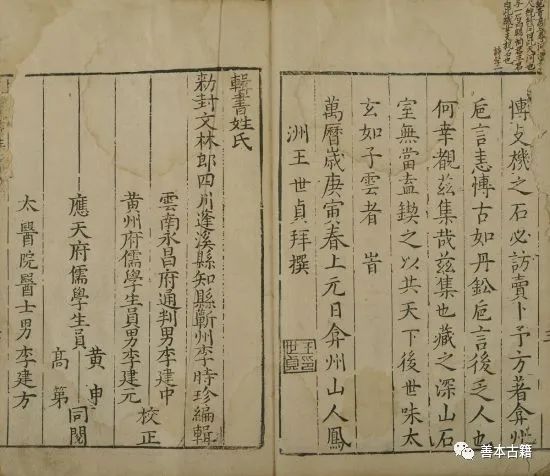 愽支機之石必訪賣卜予方著弇州
巵言恚愽古如丹鈆巵言後乏人也
何幸覩茲集哉茲集也藏之深山石
室無當盍鍥之以共天下後世味太
玄如子雲者 旹
萬曆歲庚寅春上元日弇州山人鳳
洲王世貞拜撰
三
輯書姓氏
勑封文林郎四川蓬溪縣知縣蘄州李時珍編輯
雲南永昌府通判男李建中
黃州府儒學生員男李建元
校正
應天府儒學生員
黃申
高第
同閱
太醫院醫士男李建方
善本古籍